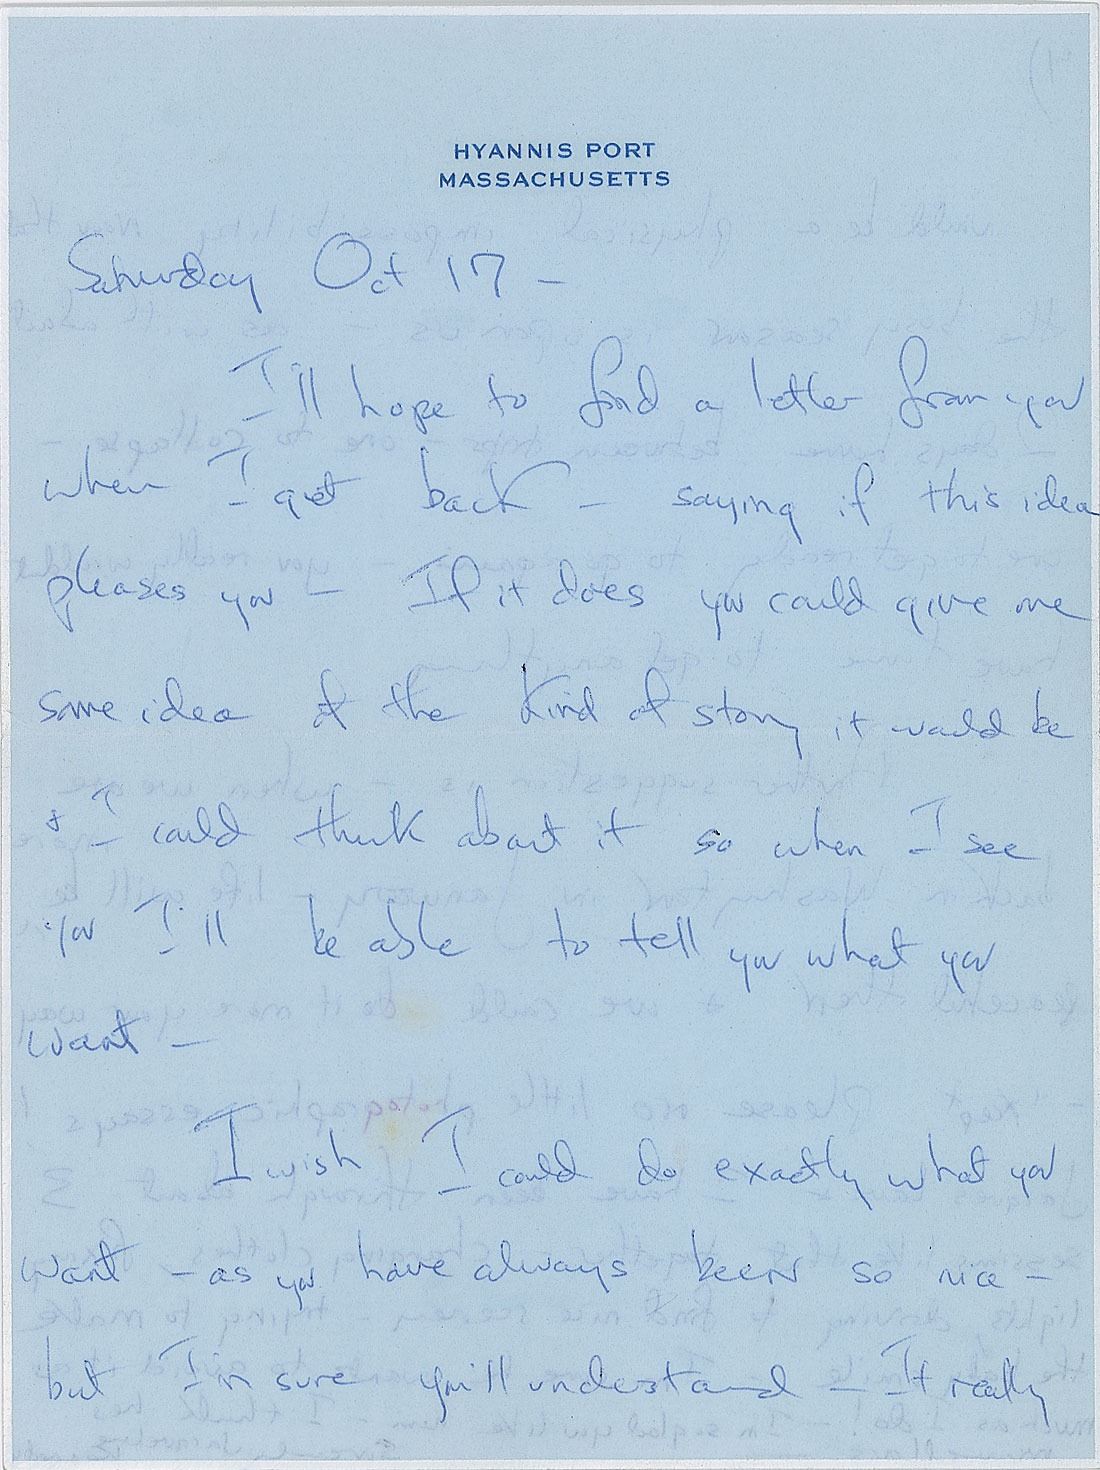 HYANNIS PORT
MASSACHUSETTS
Saturday Oct 17 –
I'll hope to find a letter from you
when I get back – saying if this idea
pleases you – If it does you could give me
some idea of the kind of story it would be
& I could think about it so when I see
you I'll be able to tell you what you
want –
I wish I could do exactly what you
want – as you have always been so nice –
but I'm sure you'll understand – It really